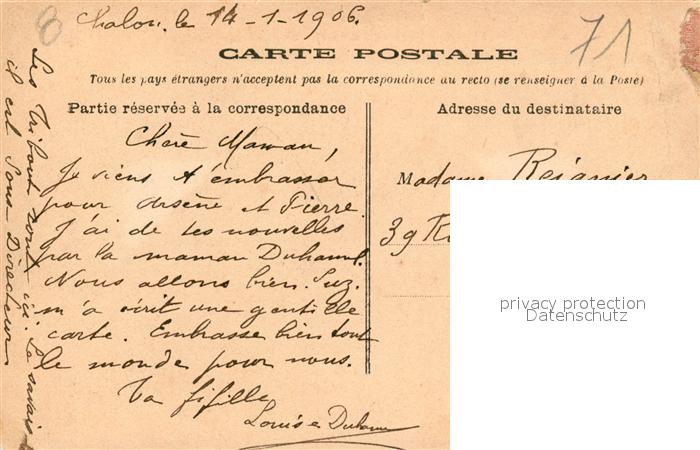 Chalon, le 14-1-1906.
71
CARTE POSTALE
Tous les pays étrangers n'acceptent pas la correspondance au recto (se renseigner à la Poste)
Partie réservée à la correspondance
Chère Maman,
Je viens t'embrasser
pour Arsène et Pierre.
J'ai de tes nouvelles
par la maman Duhamel.
Nous allons bien. Suz.
m'a écrit une gentille
carte. Embrasse bien tout
le monde pour nous.
Ta fifille
Louise Duhamel
Les Tribout sont ici. Le savais-
il est Sous Directeur
Adresse du destinataire
Madame Reignier
39 R
privacy protection
Datenschutz